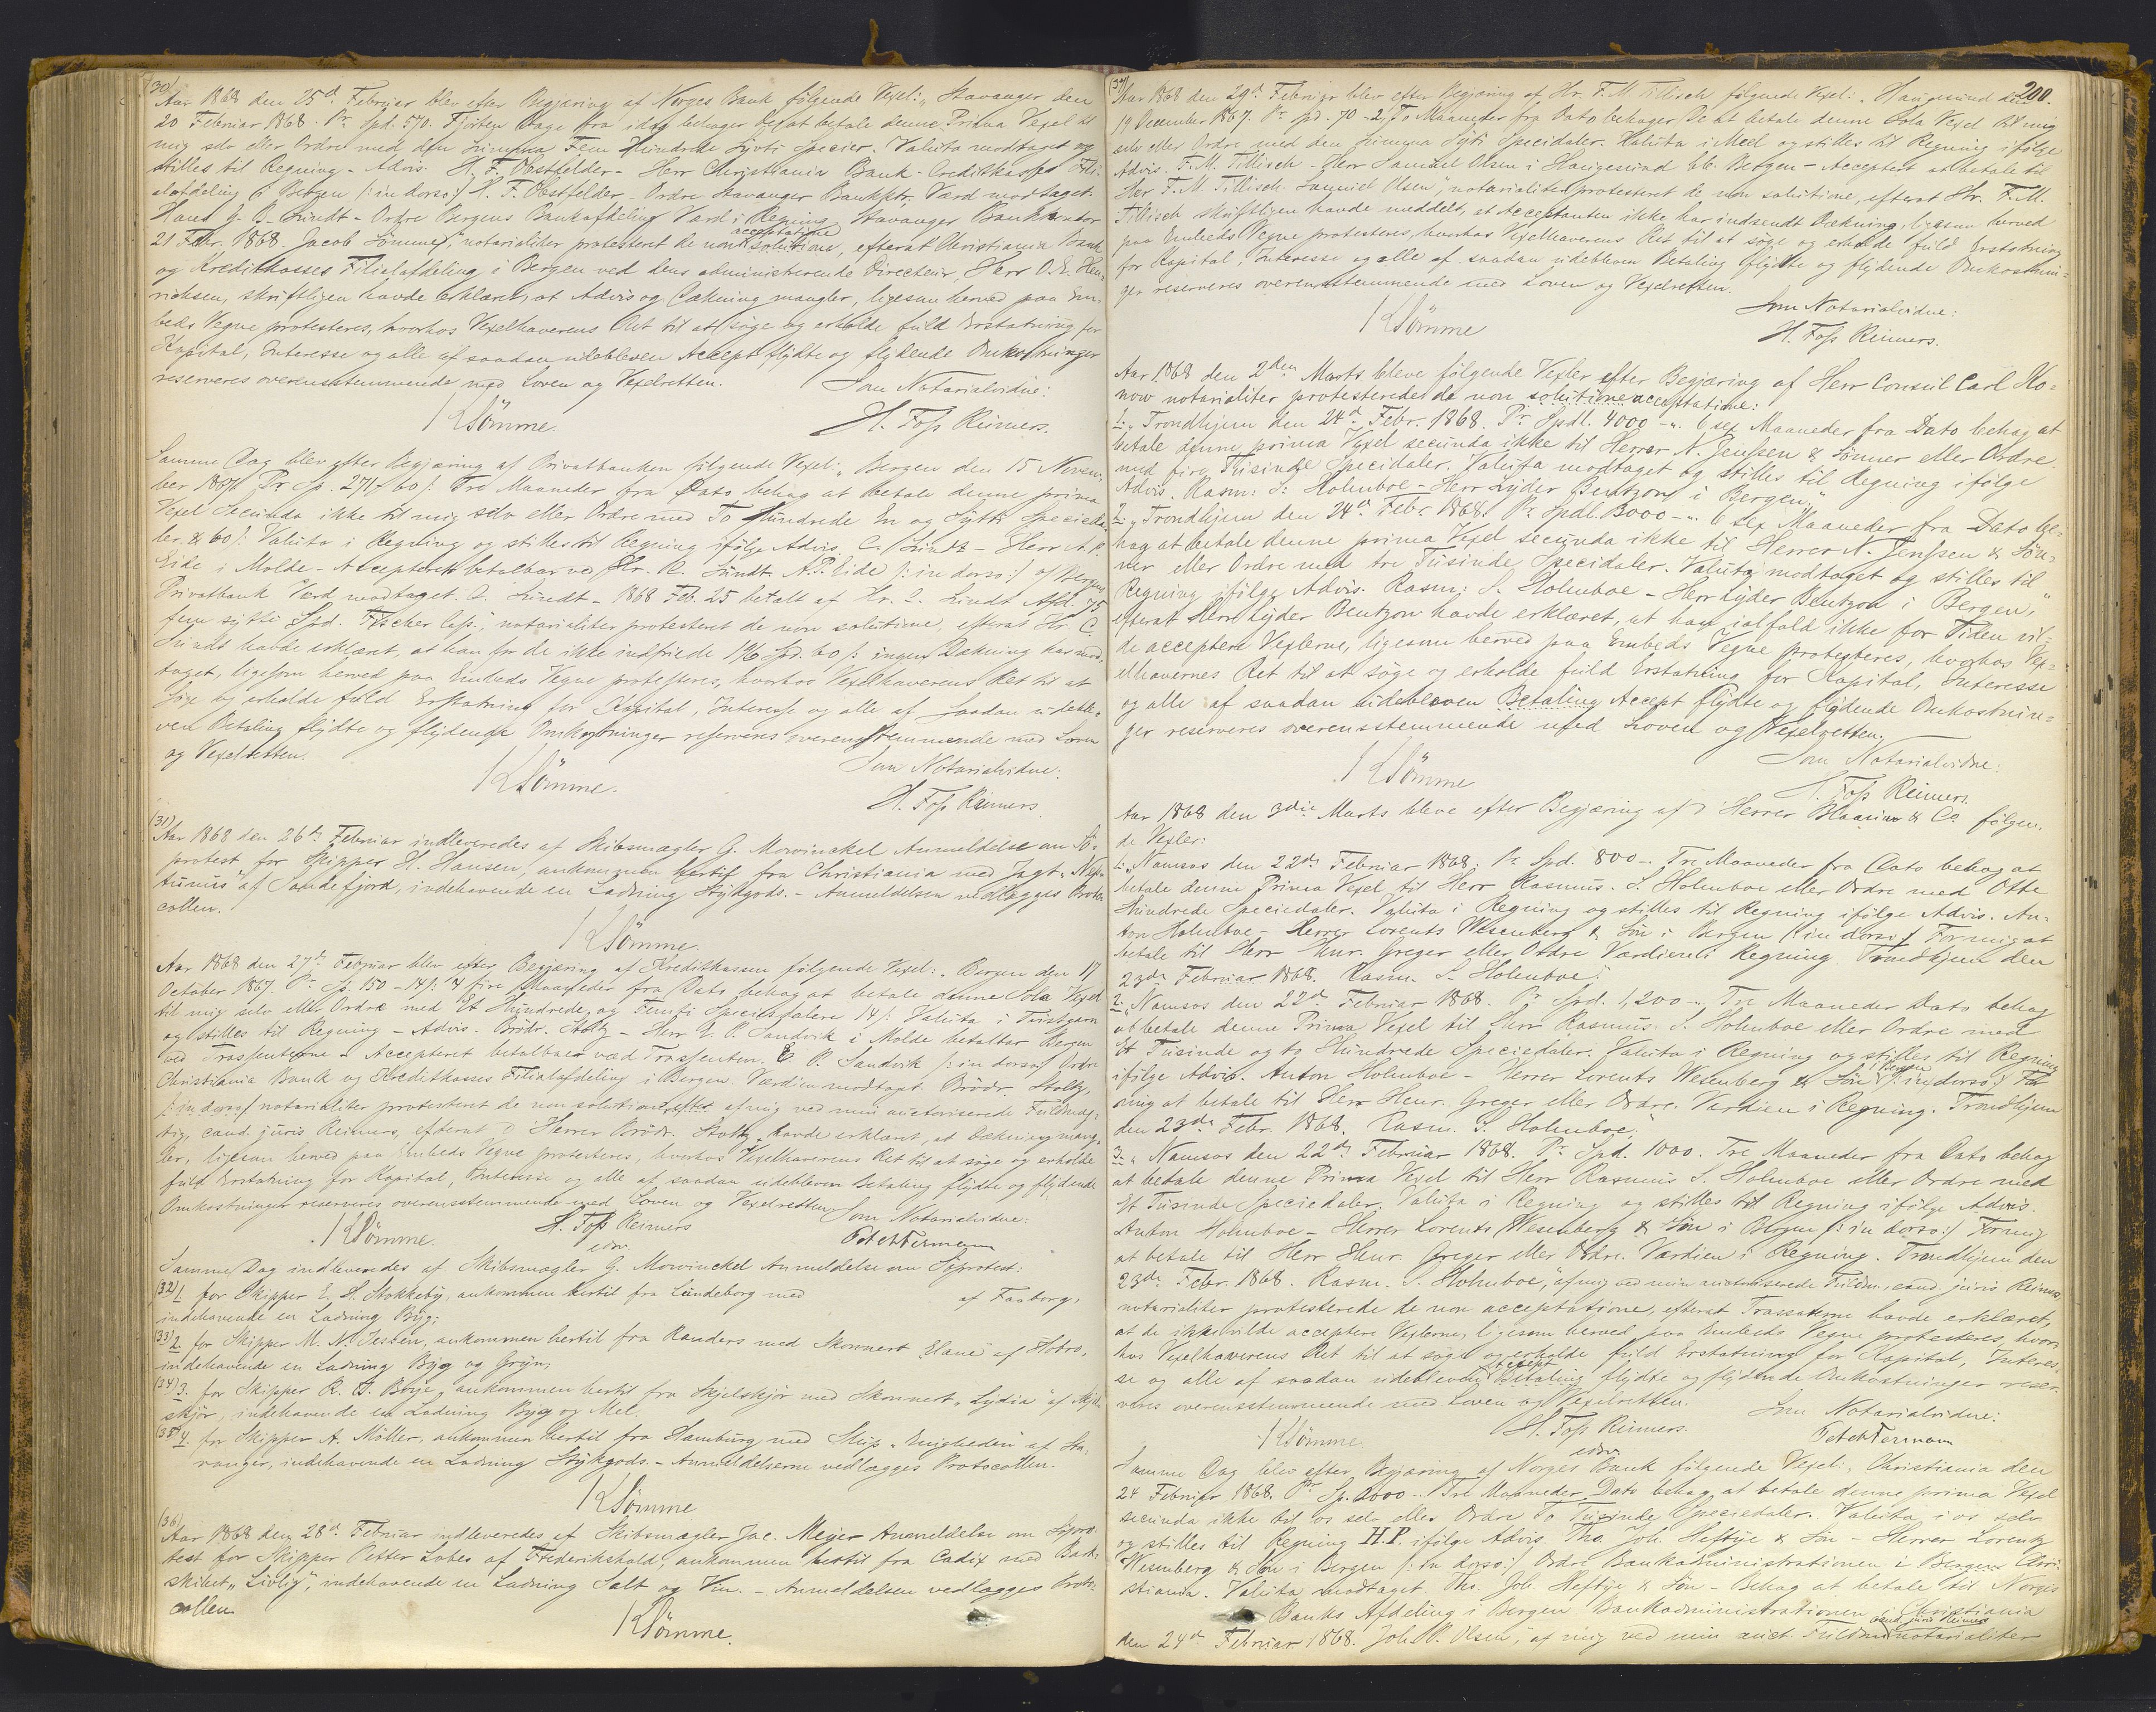 (30)
Aar 1868 den 25d. Februar blev efter Begjæring af Norges Bank følgende Vexel: „Stavanger den
20 Februar 1868. Pr. Spd. 570. Fjorten Dage fra idag behager De at betale denne Prima Vexel til
mig selv eller Ordre med den Summa Fem Hundrede Sytti Specier. Valuta modtaget og
stilles til Regning - Advis. H. F. Obstfelder - Herr Christiania Bank- Creditkasses Fili-
alafdeling i Bergen /: in dorso:/ H. F. Obstfelder - Ordre Stavanger Bankktr. Værd modtaget.
Hans G. B. Sundt - Ordre Bergens Bankafdeling Værd i Regning Stavanger Bankkontor
21 Febr. 1868. Jacob Sømme“, notarialiter protesteret de non solutione, efterat Christiania Bank
acceptatione
og Kreditkasses Filialafdeling i Bergen ved dens administrerende Directeur, Herr O. E. Hen-
richsen, skriftligen havde erklæret, at Advis og Dækning mangler, ligesom herved paa Em-
beds Vegne protesteres, hvorhos Vexelhaverens Ret til at søge og erholde fuld Erstatning for
Kapital, Interesse og alle af saadan udebleven Accept flydte og flydende Omkostninger
reserveres overensstemmende med Loven og Vexelretten. Som Notarialvidne:
K Sømme. H. Foss Reimers.
Samme Dag blev efter Begjæring af Privatbanken følgende Vexel: „Bergen den 15 Novem-
ber 1867. Pr Sp. 271 - 60 /: Tre Maaneder fra Dato behag at betale denne prima
Vexel Secunda ikke til mig selv eller Ordre med To Hundrede En og Sytti Specieda-
ler & 60 /: Valuta i Regning og stilles til Regning ifølge Advis. C. Sundt - Herr A. P.
Eide i Molde - Accepteret betalbar ved Hr. C. Sundt. A. P. Eide /: in dorso:/ af Bergens
Privatbank Værd modtaget. C. Sundt - 1868 Feb. 25 betalt af Hr. C. Sundt Afd. 75
fem sytti Spd. Fischer Cass.“, notarialiter protesteret de non solutione, efterat Hr. C.
Sundt havde erklæret, at han for de ikke indfriede 196 Spd. 60 /: ingen Dækning har mod-
taget, ligesom herved paa Embeds Vegne protesteres, hvorhos Vexelhaverens Ret til at
søge og erholde fuld Erstatning for Kapital, Interesse og alle af saadan udeble-
ven Betaling flydte og flydende Omkostninger reserveres overensstemmende med Loven
og Vexelretten. Som Notarialvidne:
K Sømme. H. Foss Reimers.
(31)
Aar 1868 den 26d. Februar indleveredes af Skibsmægler G. Mowinckel Anmeldelse om Sø-
protest for Skipper H. Hansen, ankommen hertil fra Christiania med Jagt „Nep-
tunus“ af Sandefjord, indehavende en Ladning Stykgods. - Anmeldelsen vedlægges Proto-
collen.
K Sømme.
Aar 1868 den 27d. Februar blev efter Begjæring af Kreditkassen følgende Vexel: „Bergen den 17
October 1867. Pr. Sp. 150 - 14 /: 4 fire Maaneder fra Dato behag at betale denne Sola Vexel
til mig selv eller Ordre med Et Hundrede og Femti Speciedalere 14 /: Valuta i Tvistgarn
og stilles til Regning - Advis. Brødr. Stoltz - Herr E. P. Sandvik i Molde betalbar Bergen
ved Trassenterne - Accepteret betalbar ved Trassenten. E. P. Sandvik /: in dorso:/ Ordre
Christiania Bank og Kreditkasses Filialafdeling i Bergen Værdien modtaget. Brødr. Stoltz,
/: in dorso:/ notarialiter protesteret de non solutione, efter af mig ved min auctoriserede Fuldmæg-
tig, cand. juris Reimers, efterat D Herrer Brødr. Stoltz havde erklæret, at Dækning mang-
ler, ligesom herved paa Embeds Vegne protesteres, hvorhos Vexelhaverens Ret til at søge og erholde
fuld Erstatning for Kapital, Interesse og alle af saadan udebleven Betaling flydte og flydende
Omkostninger reserveres overensstemmende med Loven og Vexelretten. Som Notarialvidne:
K Sømme. H. Foss Reimers
edsv.
Samme Dag indleveredes af Skibsmægler G. Mowinckel Anmeldelse om Søprotest:
(32) 1. for Skipper E. H. Stokkeby, ankommen hertil fra Lundeborg med af Faaborg,
indehavende en Ladning Byg;
(33) 2. for Skipper M. N. Jesten, ankommen hertil fra Randers med Skonnert Elane af Hobro,
indehavende en Ladning Byg og Gryn;
(34) 3. for Skipper R. J. Boye, ankommen hertil fra Skjelskjør med Skonnert „Lydia“ af Skjel-
skjør, indehavende en Ladning Byg og Mel.
(35) 4. for Skipper A. Møller, ankommen hertil fra Hamburg med Skip „Enigheden“ af Sta-
vanger, indehavende en Ladning Stykgods. - Anmeldelserne vedlægges Protocollen.
K Sømme
(36)
Aar 1868 den 28d. Februar indleveredes af Skibsmægler Jac. Meyer Anmeldelse om Søpro-
test for Skipper Petter Lobes af Frederikshald, ankommen hertil fra Cadix med Bark-
skibet „Livlig“, indehavende en Ladning Salt og Vin. - Anmeldelsen vedlægges Proto-
collen.
K Sømme.
200.
(37)
Aar 1868 den 29d. Februar blev efter Begjæring af Hr. F. M. Tillisch følgende Vexel: „Haugesund den
19 December 1867. Pr. Spd. 70 - 2/ To Maaneder fra Dato behager De at betale denne Sola Vexel til mig
selv eller Ordre med den Summa Sytti Specidaler. Valuta i Meel og stilles til Regning ifølge
Advis. F. M. Tillisch - Herr Samuel Olsen i Haugesund bb. Bergen - Accepteret at betale til
Herr F. M. Tillisch. Samuel Olsen“, notarialiter protesteret de non solutione, efterat Hr. F. M.
Tillisch skriftligen havde meddelt, at Acceptanten ikke har indsendt Dækning, ligesom herved
paa Embeds Vegne protesteres, hvorhos Vexelhaverens Ret til at søge og erholde fuld Erstatning
for Kapital, Interesse og alle af saadan udebleven Betaling flydte og flydende Omkostnin-
ger reserveres overensstemmende med Loven og Vexelretten.
Som Notarialvidne:
K Sømme H. Foss Reimers.
Aar 1868 den 2den Marts bleve følgende Vexler efter Begjæring af Herr Consul Carl Ko-
now notarialiter protesterede de non solutione acceptatione:
1. „Trondhjem den 24d. Febr. 1868. Pr Spdl. 4000 -„. 6 sex Maaneder fra Dato behag at
betale denne prima Vexel secunda ikke til Herrer N. Jenssen & Sønner eller Ordre
med fire Tusinde Specidaler. Valuta modtaget og stilles til Regning ifølge
Advis. Rasm: S: Holmboe - Herr Lyder Bentzon i Bergen;“
2. „Trondhjem den 24d. Febr 1868. Pr Spdl. 3000 -„. 6 sex Maaneder fra Dato be-
hag at betale denne prima Vexel secunda ikke til Herrer N. Jenssen & Søn-
ner eller Ordre med tre Tusinde Specidaler. Valuta modtaget og stilles til
Regning ifølge Advis. Rasm: S. Holmboe - Herr Lyder Bentzon i Bergen,“
efterat Herr Lyder Bentzon havde erklæret, at han ialfald ikke for Tiden vil-
de acceptere Vexlerne, ligesom herved paa Embeds Vegne protesteres, hvorhos Vex-
elhavernes Ret til at søge og erholde fuld Erstatning for Kapital, Interesse
og alle af saadan udebleven Betaling Accept flydte og flydende Omkostnin-
ger reserveres overensstemmende med Loven og Vexelretten.
Som Notarialvidne:
K Sømme H. Foss Reimers.
Aar 1868 den 3die Marts bleve efter Begjæring af D Herrer Blaauw & Co følgen-
de Vexler:
1. „Namsos den 22de Februar 1868. Pr Spd. 800 -. Tre Maaneder fra Dato behag at
betale denne Prima Vexel til Herr Rasmus. S. Holmboe eller Ordre med Otte
Hundrede Speciedaler. Valuta i Regning og stilles til Regning ifølge Advis. An-
ton Holmboe - Herrer Lorents Wesenberg & Søn i Bergen /: in dorso:/ For mig at
betale til Herr Henr. Greger eller Ordre Værdien i Regning. Trondhjem den
23de Februar 1868. Rasm. S. Holmboe;“
2. „Namsos den 22d. Februar 1868. Pr Spd. 1,200 -„. Tre Maaneder Dato behag
at betale denne Prima Vexel til Herr Rasmus. S. Holmboe eller Ordre med
Et Tusinde og to Hundrede Speciedaler. Valuta i Regning og stilles til Regning
ifølge Advis. Anton Holmboe - Herrer Lorents Wesenberg & Søn i Bergen /: in dorso:/ For
mig at betale til Herr Henr. Greger eller Ordre. Værdien i Regning. Trondhjem
den 23de Febr. 1868. Rasm. S. Holmboe;“
3. „Namsos den 22de Februar 1868. Pr. Spd. 1000. Tre Maaneder fra Dato behag
at betale denne Prima Vexel til Herr Rasmus S. Holmboe eller Ordre med
Et Tusinde Speciedaler. Valuta i Regning og stilles til Regning ifølge Advis.
Anton Holmboe - Herrer Lorents Wesenberg & Søn i Bergen /: in dorso:/ For mig
at betale til Herr Henr. Greger eller Ordre. Værdien i Regning. Trondhjem den
23de Febr. 1868. Rasm. S. Holmboe,“ af mig ved min auctoriserede Fuldm., cand. juris Reimers
notarialiter protesterede de non acceptatione, efterat Trassaterne havde erklæret,
at de ikke vilde acceptere Vexlerne, ligesom herved paa Embeds Vegne protesteres, hvor-
hos Vexelhaverens Ret til at søge og erholde fuld Erstatning for Kapital, Interes-
se og alle af saadan udebleven Betaling flydte og flydende Omkostninger reser-
Accept
veres overensstemmende med Loven og Vexelretten. Som Notarialvidne:
K Sømme. H. Foss Reimers.
edsv.
Samme Dag blev efter Begjæring af Norges Bank følgende Vexel: „Christiania den
24 Februar 1868. Pr Sp. 2000 -. Tre Maaneder Dato behag at betale denne prima Vexel
secunda ikke til os selv eller Ordre To Tusinde Speciedaler. Valuta i os selv
og stilles til Regning H.P. ifølge Advis Tho. Joh. Heftye & Søn - Herrer Lorentz
Wesenberg & Søn i Bergen /: in dorso:/ Ordre Bankadministrationen i Bergen Chri-
stiania. Valuta modtaget Tho. Joh. Heftye & Søn - Behag at betale til Norges
Banks Afdeling i Bergen Bankadministrationen i Christiania
den 24d Februar 1868. Joh. N. Olsen“, af mig ved min auct. Fuldm. cand. juris Reimers notarialiter